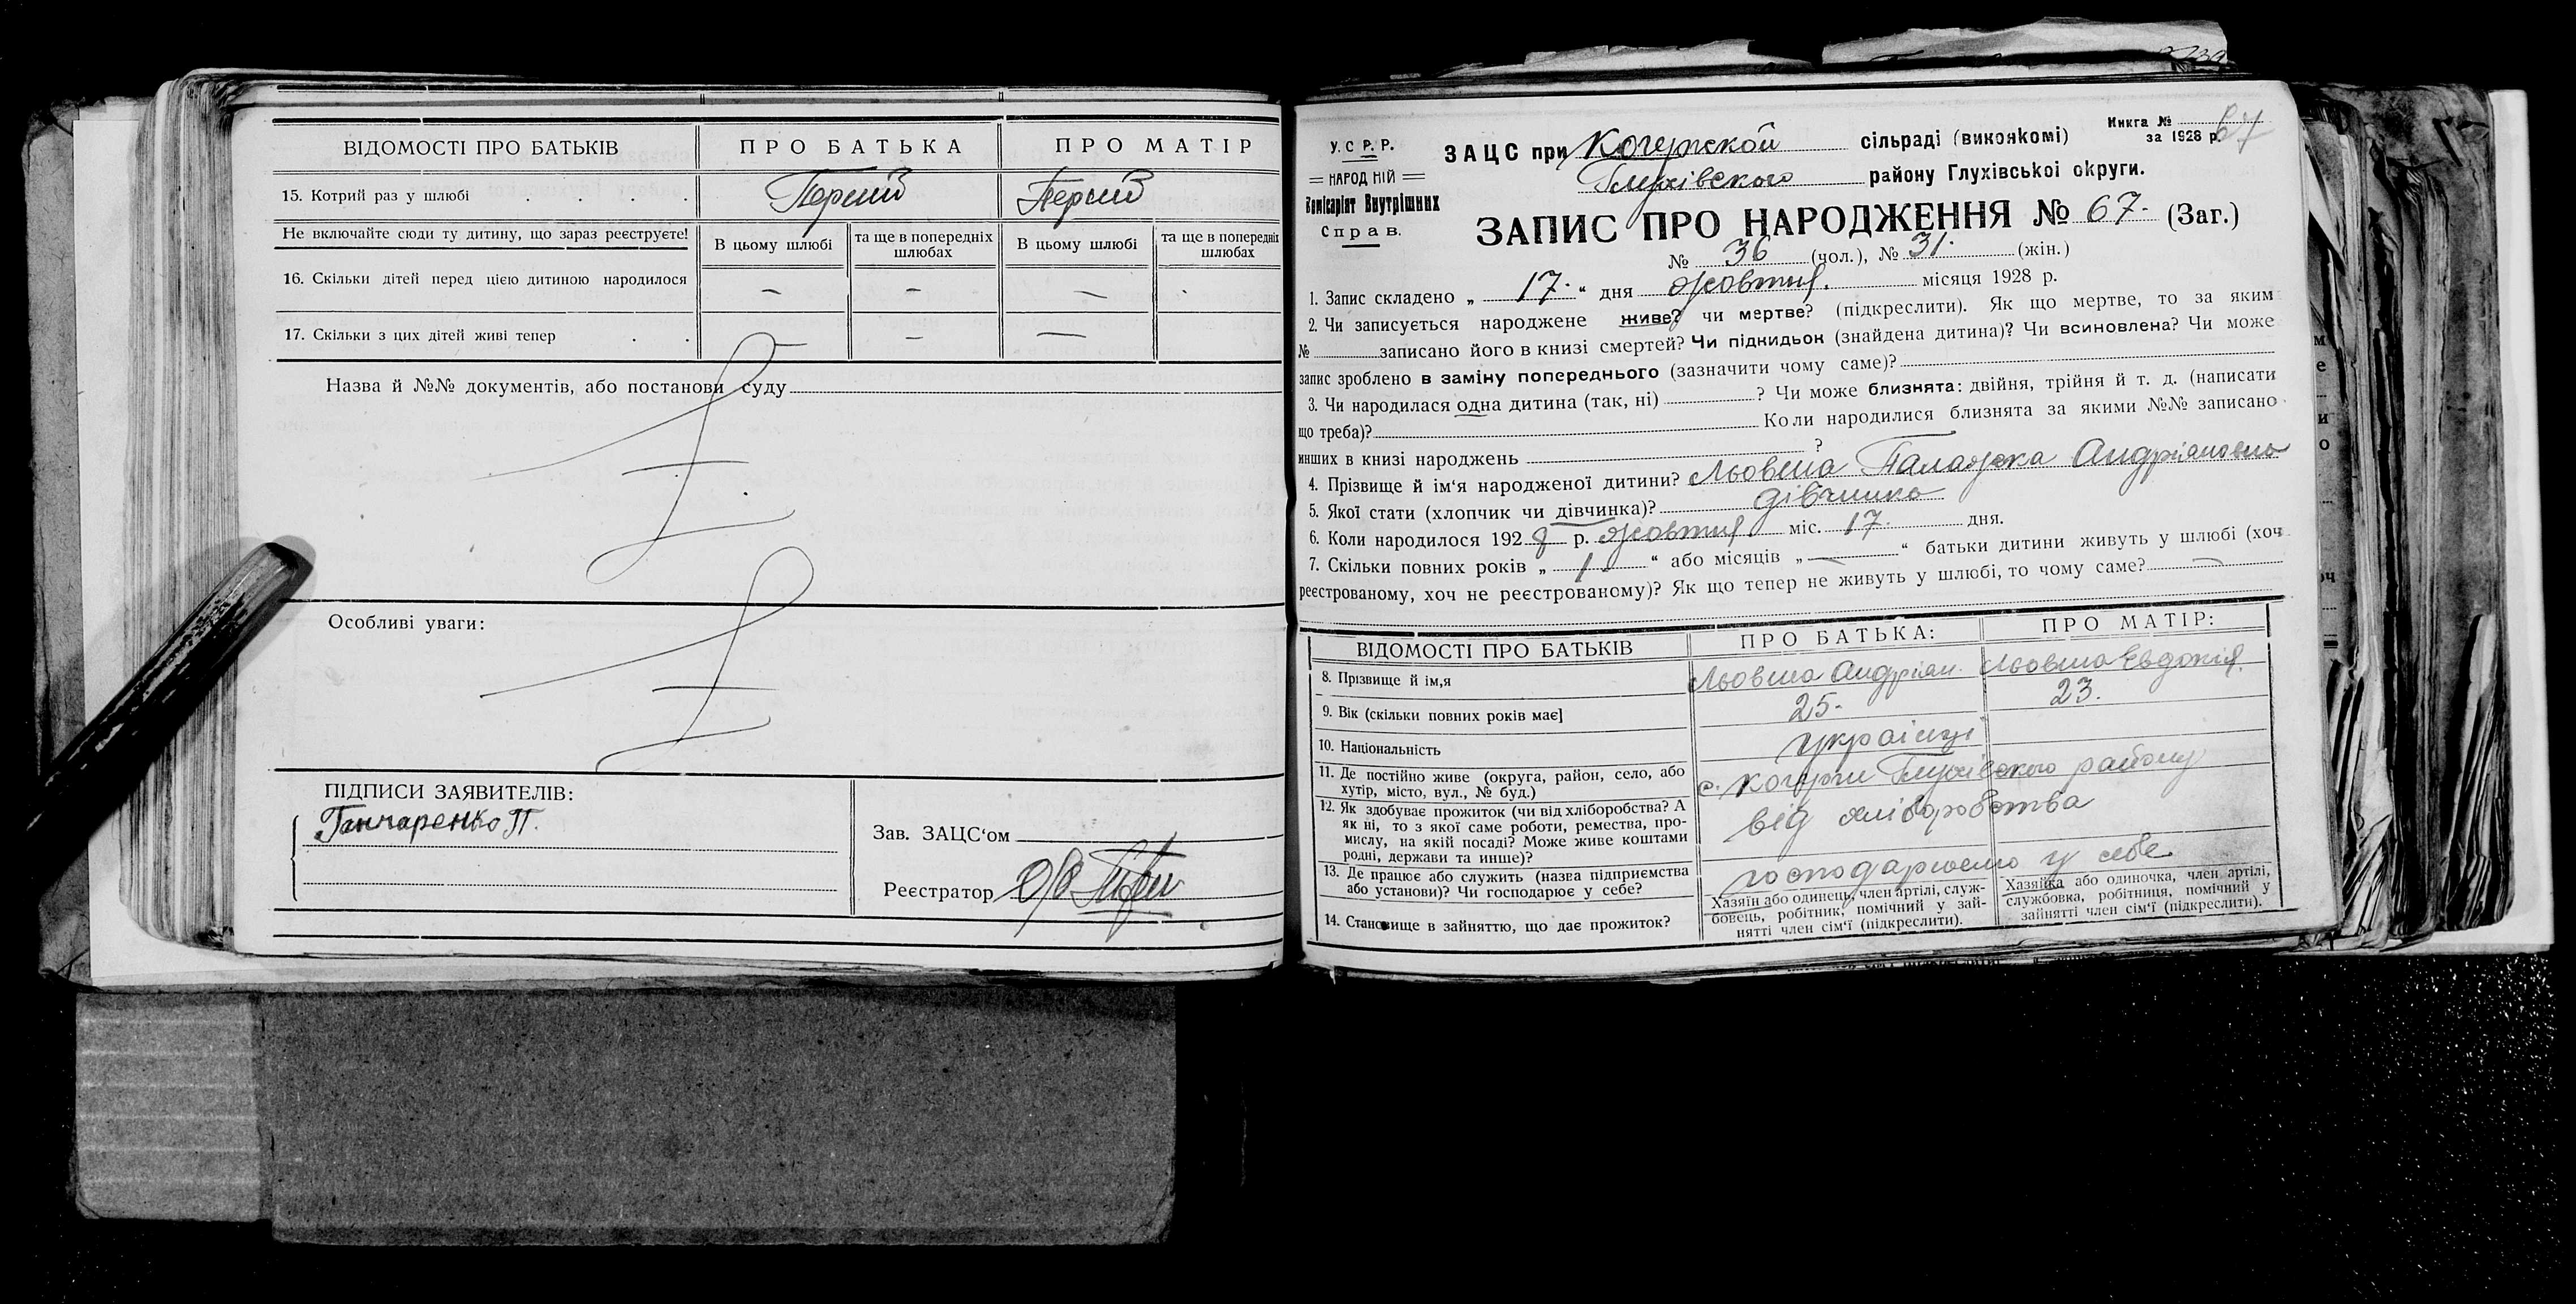 ВІДОМОСТІ ПРО БАТЬКІВ
ПРО БАТЬКА
ПРО МАТІР
15. Котрий раз у шлюбі . . . .
Перший
Перший
Не включайте сюди ту дитину, що зараз реєструєте!
В цьому шлюбі
та ще в попередніх шлюбах
В цьому шлюбі
та ще в попередніх
шлюбах
16. Скільки дітей перед цією дитиною народилося
— — —
17. Скільки з цих дітей живі тепер . .
— — —
Назва й №№ документів, або постанови суду
Особливі уваги:
ПІДПИСИ ЗАЯВИТЕЛІВ:
Ганчаренко П.
Зав. ЗАЦС‘ом
Реєстратор
У. С Р. Р.
НАРОДНІЙ
Комісаріят Внутрішних
Справ.
ЗАЦС при Кочержской сільраді (виконкомі)
Глухівского району Глухівської округи.
Книга №
за 1928 р.
67
ЗАПИС ПРО НАРОДЖЕННЯ № 67. (Заг.)
№ 36 (чол.), № 31. (жін.)
1. Запис складено „ 17. “ дня жовтня. місяця 1928 р.
2. Чи записується народжене живе? чи мертве? (підкреслити). Як що мертве, то за яким
№ записано його в книзі смертей? Чи підкидьок (знайдена дитина)? Чи всиновлена? Чи може
запис зроблено в заміну попереднього (зазначити чому саме)?
3. Чи народилася одна дитина (так, ні) ? Чи може близнята: двійня, трійня й т. д. (написати
що треба)? Коли народилися близнята за якими №№ записано
инших в книзі народжень ?
4. Прізвище й ім‘я народженої дитини? Льовша Палажка Андріяновна
5. Якої стати (хлопчик чи дівчинка)? дівчинка
6. Коли народилося 1928 р. жовтня міс. 17. дня.
7. Скільки повних років „ 1. “ або місяців „ — “ батьки дитини живуть у шлюбі (хоч
реєстрованому, хоч не реєстрованому)? Як що тепер не живуть у шлюбі, то чому саме? —
ВІДОМОСТІ ПРО БАТЬКІВ
ПРО БАТЬКА:
ПРО МАТІР:
8. Прізвище й ім,я
Льовша Андріян.
Льовша Евдокія.
9. Вік (скільки повних років має]
25.
23.
10. Національність
українці
11. Де постійно живе (округа, район, село, або
хутір, місто, вул., № буд.)
с. Кочерги Глухівского району
12. Як здобуває прожиток (чи від хліборобства? А
як ні, то з якої саме роботи, ремества, про-
мислу, на якій посаді? Може живе коштами
родні, держави та инше)?
від хліборобства
13. Де працює або служить (назва підприємства
або установи)? Чи господарює у себе?
господарюємо у себе
14. Становище в зайняттю, що дає прожиток?
Хазяїн або одинець, член артілі, служ-
бовець, робітник, помічний у зай-
нятті член сім‘ї (підкреслити).
Хазяйка або одиночка, член артілі,
службовка, робітниця, помічний у
зайнятті член сім‘ї (підкреслити).